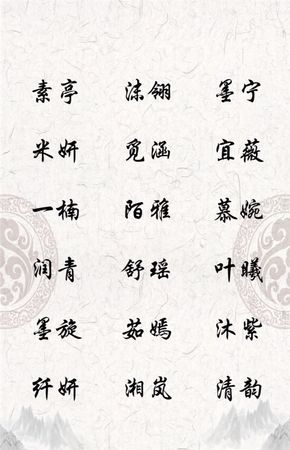 素亭 沫翎 墨宁
米妍 觅涵 宜薇
一楠 陌雅 慕婉
润青 舒瑶 叶曦
墨旋 茹嫣 沐紫
纤妍 湘岚 清韵